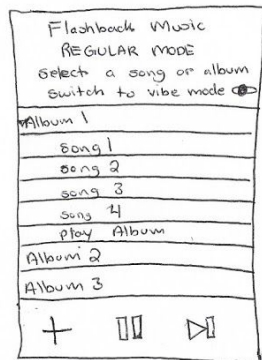 Flashback Music
REGULAR MODE
Select a song or album
Switch to vibe mode
Album 1
song 1
song 2
song 3
song 4
play Album
Album 2
Album 3